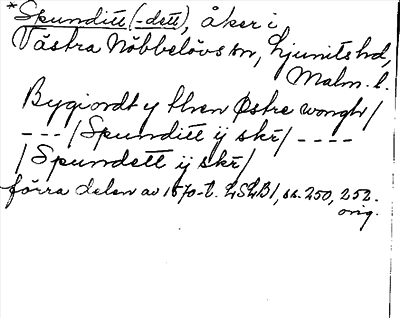 *Spunditt (-dett), åker i
Västra Nöbbelövs sn, Ljunits hd,
Malm. l.
Bygiordt y then Østre wongh/
---/Spunditt ij skr/----
/Spundett ij skr/
förra delen av 1570-t. LSLB1, ss. 250, 252.
orig.